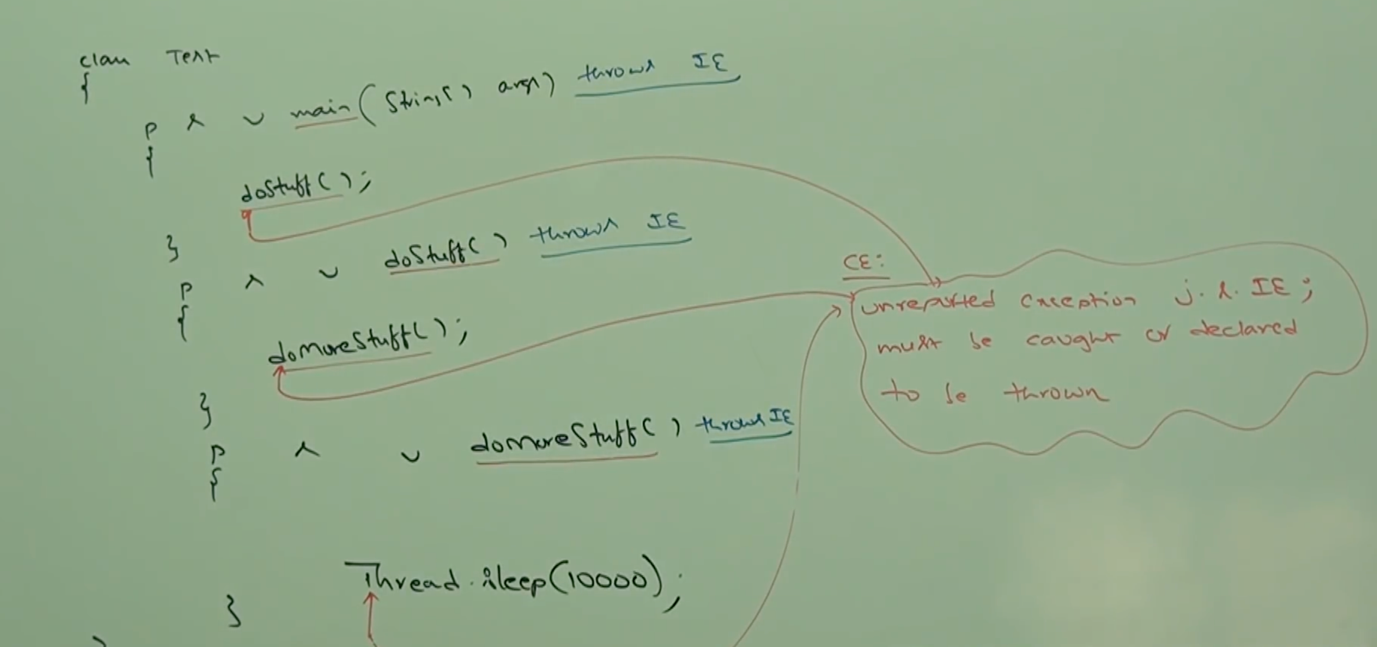 class Test
{
p s v main(String[] args) throws IE
{
doStuff();
}
p s v doStuff() throws IE
{
doMoreStuff();
}
p s v doMoreStuff() throws IE
{
Thread.sleep(10000);
}
CE:
unreported exception j.l.IE;
must be caught or declared
to be thrown